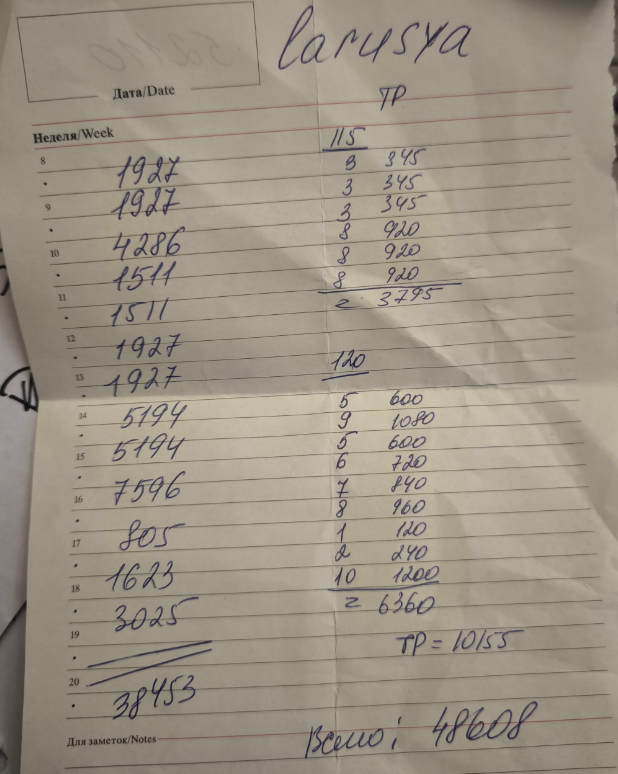 Larusya
Дата/Date
TP
Неделя/Week
115
8
1927
3 345
1927
3 345
9
3 345
4286
8 920
10
8 920
1511
8 920
11
= 3795
1511
12
1927
120
13
1927
5 600
14
5194
9 1080
5 600
15
5194
6 720
7 840
16
7596
8 960
17
805
1 120
2 240
18
1623
10 1200
3025
= 6360
19
TP = 10155
20
38453
Для заметок/Notes
Всего: 48608